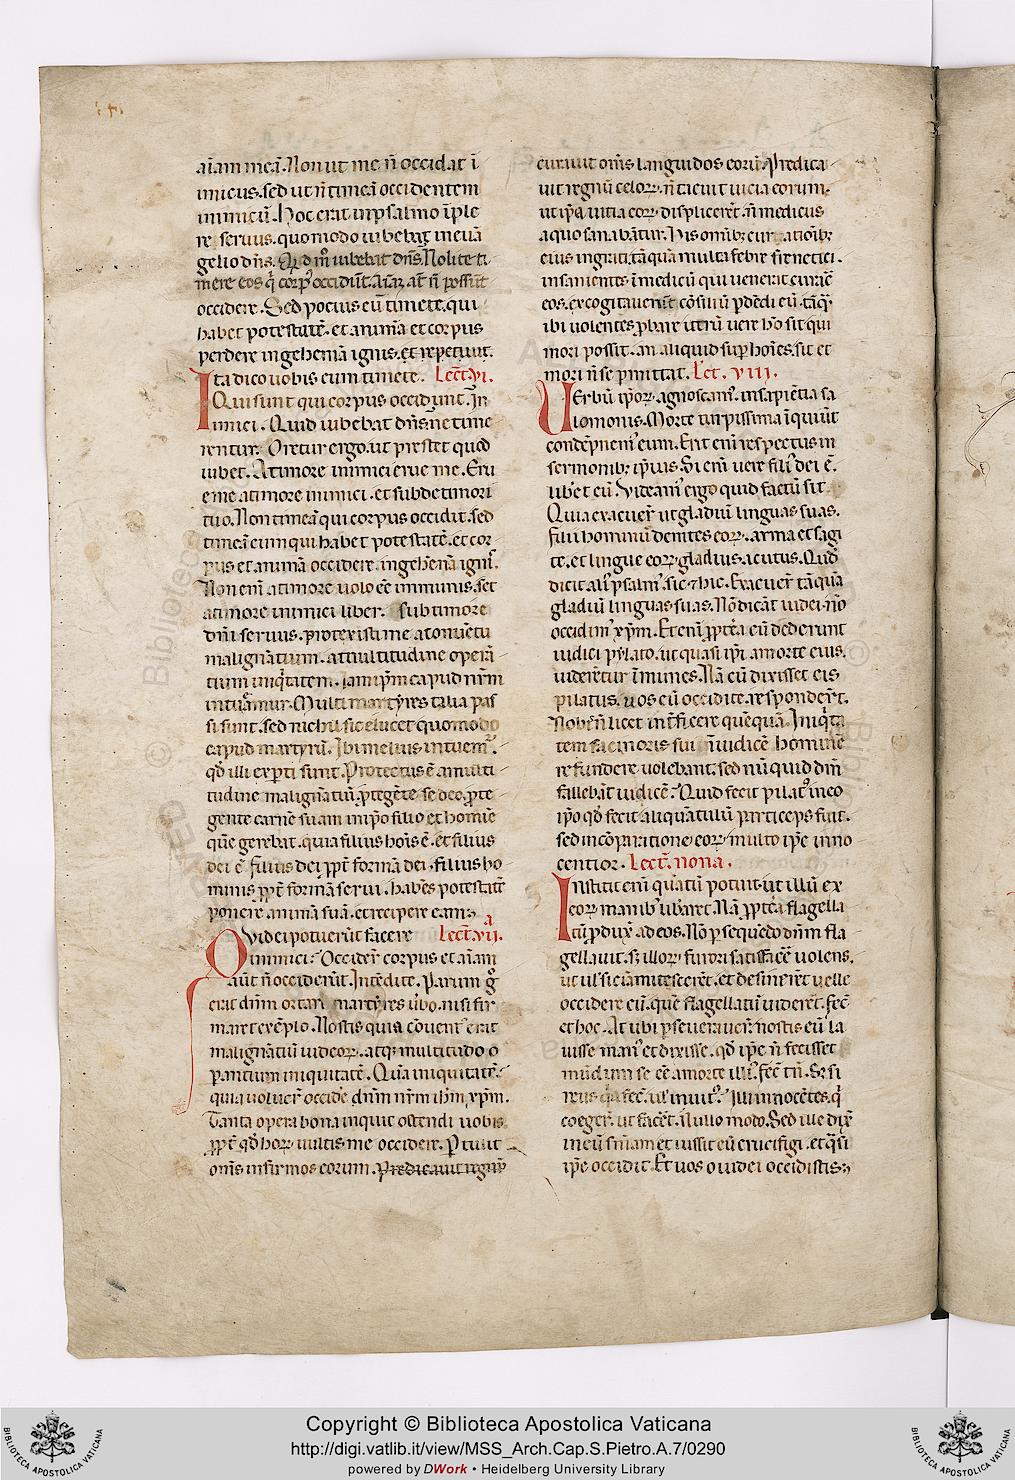 aīam meā. Non ut me n̄ occidat ī
imicus. sed ut n̄ timeā occidentem
inimicū. Hoc erat in psalmo īple
re servus. quomodo iubebat in euā
gelio dn̄s. Nolite ti
mere eos q̄ corp' occidūt. aīaʒ at̄ n̄ possūt
occidere. Sed pocius eū timete. qui
habet potestatē. et animā et corpus
perdere in gehennā ignis. et repetiuit.
Ita dico uobis eum timete. Lect. vi.
Qui sunt qui corpus occidunt. In
imici. Quid iubebat dn̄s. ne time
rentur. Oretur ergo. ut prestet quod
iubet. A timore inimici erue me. Eru
e me a timore inimici. et subde timori
tuo. Non timeā qui corpus occidit. sed
timeā eum qui habet potestatē. et cor
pus et animā occidere. in gehennā ignis.
Non enī a timore uolo eē immunis. set
a timore inimici liber. sub timore
dn̄i servus. Protexisti me a conuētu
malignātium. a multitudine operā
tium iniq̄tatem. Iam ip̄m capud nr̄m
intuamur. Multi martyres talia pas
si sunt. sed nichil sic elucet quomodo
capud martyrū. Ibi melius intuem̄.
qd̄ illi exp̄ti sunt. Protectus ē a multi
tudine malignātiū. p̄tegēte se deo. p̄te
gente carnē suam ip̄o filio et homīe
quē gerebat. quia filius hoīs ē. et filius
dei ē. Filius dei p̄pt̄ formā dei. filius ho
minis p̄pt̄ formā serui. habēs potestatē
ponere animā suā. et recipere eam.
Quid ei potuerūt facere Lect. vii.
inimici. Occider̄ corpus et aīam
aūt n̄ occiderūt. Intēdite. Parum ḡ
erat dn̄m ortari martyres ūbo. nisi fir
maret exēplo. Nostis quis cōuent' erat
malignātiū iudeoꝝ. atq; multitudo o
perantium iniquitatē. Quā iniquitatē.
quia uoluer̄ occide dn̄m nr̄m ih̄m xp̄m.
Tanta opera bona inquit ostendi uobis.
p̄pt̄ qd̄ hoꝝ uultis me occidere. Ptulit
om̄s infirmos eorum. Predicauit regnū
curauit om̄s languidos eoꝝ. Predica
uit regnū celoꝝ. n̄ tacuit uicia eorum.
ut ip̄a uitia eoꝝ displicerēt. n̄ medicus
a quo sanabātur. His omib; curationib;
eius ingrati. tāquā multa febre frenetici.
insanientes. ī medicū qui uenerat curare
eos. excogitauerūt cōsiliū p̄dēdi eū. tāq̄
ibi uolentes p̄bare utrū uere hō sit qui
mori possit. an aliquid sup̄ hoīes. sit et
mori n̄ se p̄mittat. Lct. viii.
Verbū ip̄oꝝ agnoscam̄. in sapiētia sa
lomonis. Morte turpissima īquiūt
condēpnem̄ eum. Erit enī respectus in
sermonib; ip̄ius. Si enī uere fili' dei ē.
lib'et eū. Videam̄ ergo quid factū sit.
Quia exacuer̄ ut gladiū linguas suas.
Filii hominū dentes eoꝝ. arma et sagi
te. et lingue eoꝝ gladius acutus. Qd̄
dicit ali' psalm'. sic et hic. Exacuer̄ tāquā
gladiū linguas suas. Nō dicāt iudei. nō
occidim' xp̄m. Etenī p̄pt̄ea eū dederunt
iudici pylato. ut quasi ip̄i a morte eius.
uiderētur īmunes. Nā cū dixisset eis
pilatus. uos eū occidite. respondert̄.
Nobis n̄ licet int̄ficere quēquā. Iniq̄ta
tem facinoris sui ī iudicē hominē
refundere uolebant. sed nūquid dm̄
fallebāt iudicē. Quid fecit pilat' in eo
ip̄o qd̄ fecit. aliquātulū particeps fuit.
sed in cōparatione eoꝝ. multo ip̄e inno
centior. Lect. nona.
Institit enī quātū potuit. ut illū ex
eoꝝ manib' liberaret. Nā p̄pt̄ea flagella
tū p̄dux̄ ad eos. Nō p̄sequēdo dn̄m fla
gellauit. s; illoꝝ furori satisfacēe uolens.
ut ul' sic iā mitescerēt. et desinerēt uelle
occidere eū. quē flagellatū uiderēt. fec̄
et hoc. At ubi p̄seuerauer̄. nostis eū la
uisse man' et dixisse. qd̄ ip̄e n̄ fecisset
mūdum se eē a morte illi'. fec̄ tn̄. S; si
reus quia fec̄. ul' inuit'. Illi innocētes. q̄
coeger̄ ut facēt. nullo modo. Sed ille dix̄
in eū sn̄iam et iussit eū crucifigi. et q̄si
ip̄e occidit. Et uos o iudei occidistis.
Copyright © Biblioteca Apostolica Vaticana
http://digi.vatlib.it/view/MSS_Arch.Cap.S.Pietro.A.7/0290
powered by DWork • Heidelberg University Library
BIBLIOTECA APOSTOLICA VATICANA
BIBLIOTECA APOSTOLICA VATICANA